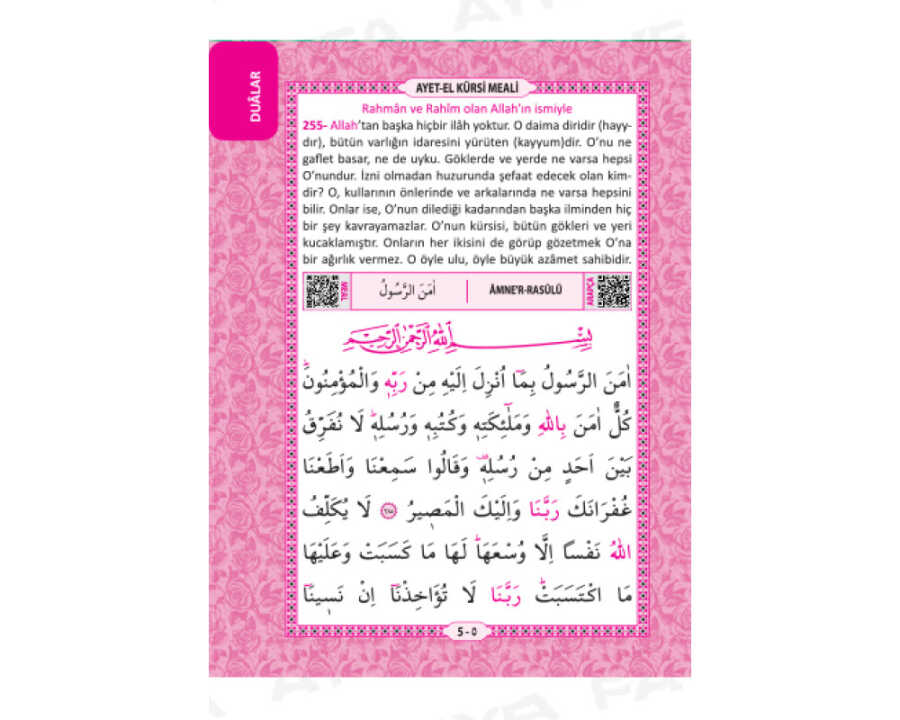 DUÂLAR
AYET-EL KÜRSİ MEALİ
Rahmân ve Rahîm olan Allah’ın ismiyle
255- Allah’tan başka hiçbir ilâh yoktur. O daima diridir (hayy-
dır), bütün varlığın idaresini yürüten (kayyum)dir. O’nu ne
gaflet basar, ne de uyku. Göklerde ve yerde ne varsa hepsi
O’nundur. İzni olmadan huzurunda şefaat edecek olan kim-
dir? O, kullarının önlerinde ve arkalarında ne varsa hepsini
bilir. Onlar ise, O’nun dilediği kadarından başka ilminden hiç
bir şey kavrayamazlar. O’nun kürsisi, bütün gökleri ve yeri
kucaklamıştır. Onların her ikisini de görüp gözetmek O’na
bir ağırlık vermez. O öyle ulu, öyle büyük azâmet sahibidir.
MEAL اٰمَنَ الرَّسُولُ ÂMNE'R-RASÛLÜ ARAPÇA
بِسْمِ اللّٰهِ الرَّحْمٰنِ الرَّحِيمِ
اٰمَنَ الرَّسُولُ بِمَٓا اُنْزِلَ اِلَيْهِ مِنْ رَبِّهٖ وَالْمُؤْمِنُونَۜ
كُلٌّ اٰمَنَ بِاللّٰهِ وَمَلٰٓئِكَتِهٖ وَكُتُبِهٖ وَرُسُلِهٖۜ لَا نُفَرِّقُ
بَيْنَ اَحَدٍ مِنْ رُسُلِهٖ۠ وَقَالُوا سَمِعْنَا وَاَطَعْنَا
غُفْرَانَكَ رَبَّنَا وَاِلَيْكَ الْمَصٖيرُ ﴿٢٨٥﴾ لَا يُكَلِّفُ
اللّٰهُ نَفْسًا اِلَّا وُسْعَهَاۜ لَهَا مَا كَسَبَتْ وَعَلَيْهَا
مَا اكْتَسَبَتْۜ رَبَّنَا لَا تُؤَاخِذْنَٓا اِنْ نَسٖينَٓا
5 - ٥